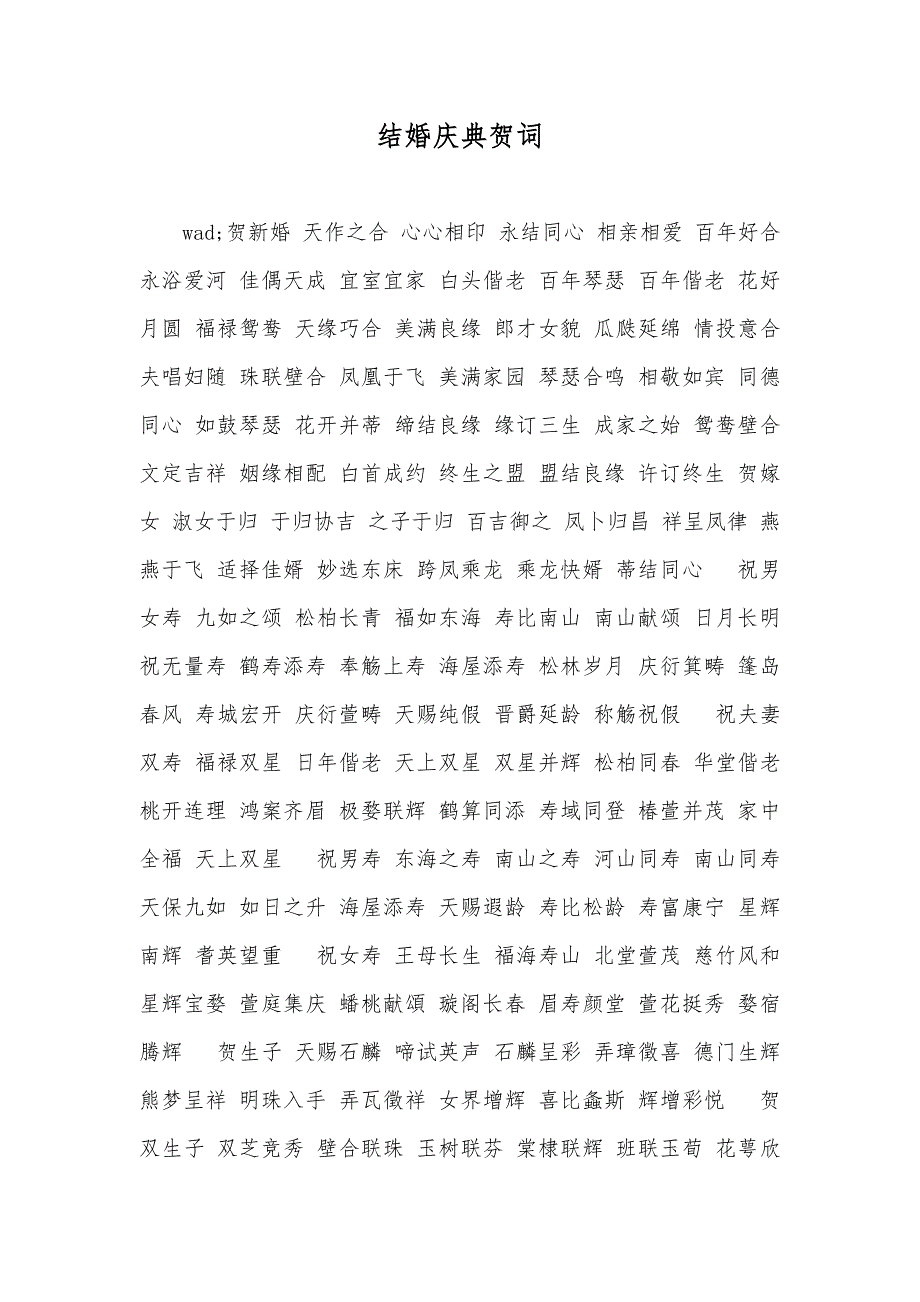 结婚庆典贺词
wad;贺新婚 天作之合 心心相印 永结同心 相亲相爱 百年好合
永浴爱河 佳偶天成 宜室宜家 白头偕老 百年琴瑟 百年偕老 花好
月圆 福禄鸳鸯 天缘巧合 美满良缘 郎才女貌 瓜瓞延绵 情投意合
夫唱妇随 珠联壁合 凤凰于飞 美满家园 琴瑟合鸣 相敬如宾 同德
同心 如鼓琴瑟 花开并蒂 缔结良缘 缘订三生 成家之始 鸳鸯壁合
文定吉祥 姻缘相配 白首成约 终生之盟 盟结良缘 许订终生 贺嫁
女 淑女于归 于归协吉 之子于归 百吉御之 凤卜归昌 祥呈凤律 燕
燕于飞 适择佳婿 妙选东床 跨凤乘龙 乘龙快婿 蒂结同心 祝男
女寿 九如之颂 松柏长青 福如东海 寿比南山 南山献颂 日月长明
祝无量寿 鹤寿添寿 奉觞上寿 海屋添寿 松林岁月 庆衍箕畴 篷岛
春风 寿城宏开 庆衍萱畴 天赐纯假 晋爵延龄 称觞祝假 祝夫妻
双寿 福禄双星 日年偕老 天上双星 双星并辉 松柏同春 华堂偕老
桃开连理 鸿案齐眉 极婺联辉 鹤算同添 寿域同登 椿萱并茂 家中
全福 天上双星 祝男寿 东海之寿 南山之寿 河山同寿 南山同寿
天保九如 如日之升 海屋添寿 天赐遐龄 寿比松龄 寿富康宁 星辉
南辉 耆英望重 祝女寿 王母长生 福海寿山 北堂萱茂 慈竹风和
星辉宝婺 萱庭集庆 蟠桃献頌 璇阁长春 眉寿颜堂 萱花挺秀 婺宿
腾辉 贺生子 天赐石麟 啼试英声 石麟呈彩 弄璋徵喜 德门生辉
熊梦呈祥 明珠入手 弄瓦徵祥 女界增辉 喜比螽斯 辉增彩悦 贺
双生子 双芝竞秀 壁合联珠 玉树联芬 棠棣联辉 班联玉荀 花萼欣